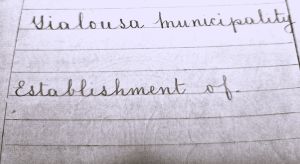 Yialousa Municipality
Establishment of.